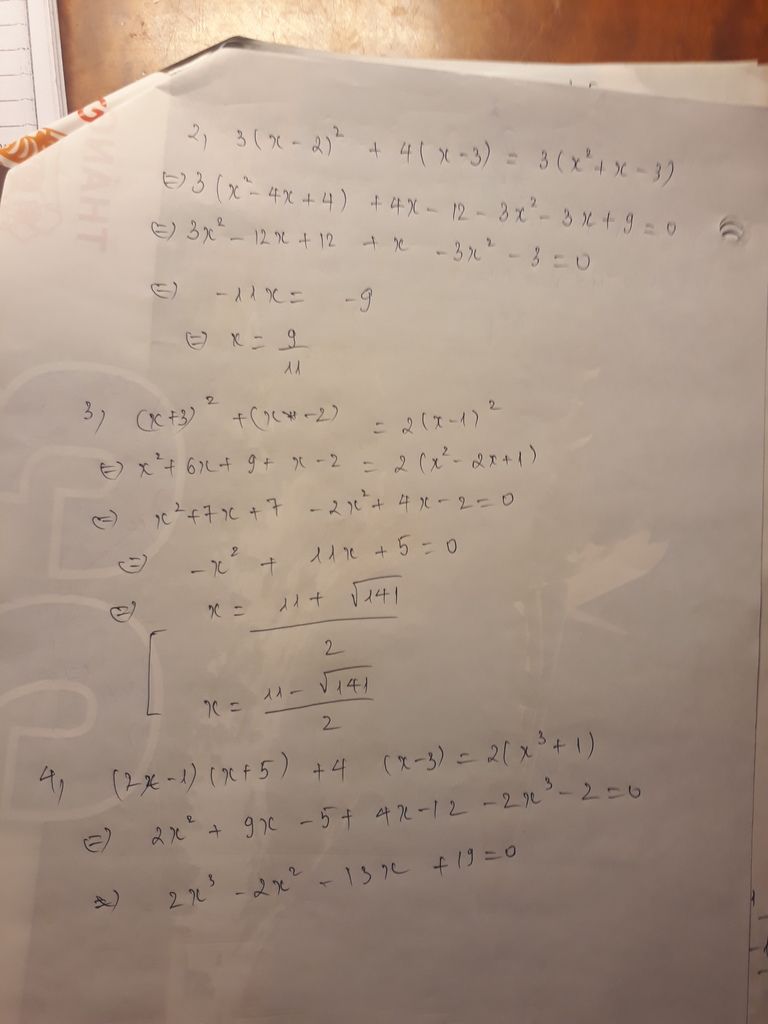 2, 3(x - 2)² + 4(x - 3) = 3(x² + x - 3)
⇔ 3(x² - 4x + 4) + 4x - 12 - 3x² - 3x + 9 = 0
⇔ 3x² - 12x + 12 + x - 3x² - 3 = 0
⇔ -11x = -9
⇔ x = 9/11
3, (x+3)² + (x - 2) = 2(x-1)²
⇔ x² + 6x + 9 + x - 2 = 2(x² - 2x + 1)
⇔ x² + 7x + 7 - 2x² + 4x - 2 = 0
⇔ -x² + 11x + 5 = 0
⇔ [ x = (11 + √141)/2
x = (11 - √141)/2
4, (2x - 1)(x + 5) + 4 (x - 3) = 2(x³ + 1)
⇔ 2x² + 9x - 5 + 4x - 12 - 2x³ - 2 = 0
⇔ 2x³ - 2x² - 13x + 19 = 0